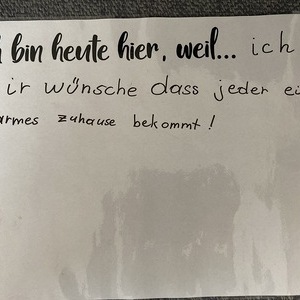 bin heute hier, weil... ich
ir wünsche dass jeder ei
armes zuhause bekommt!